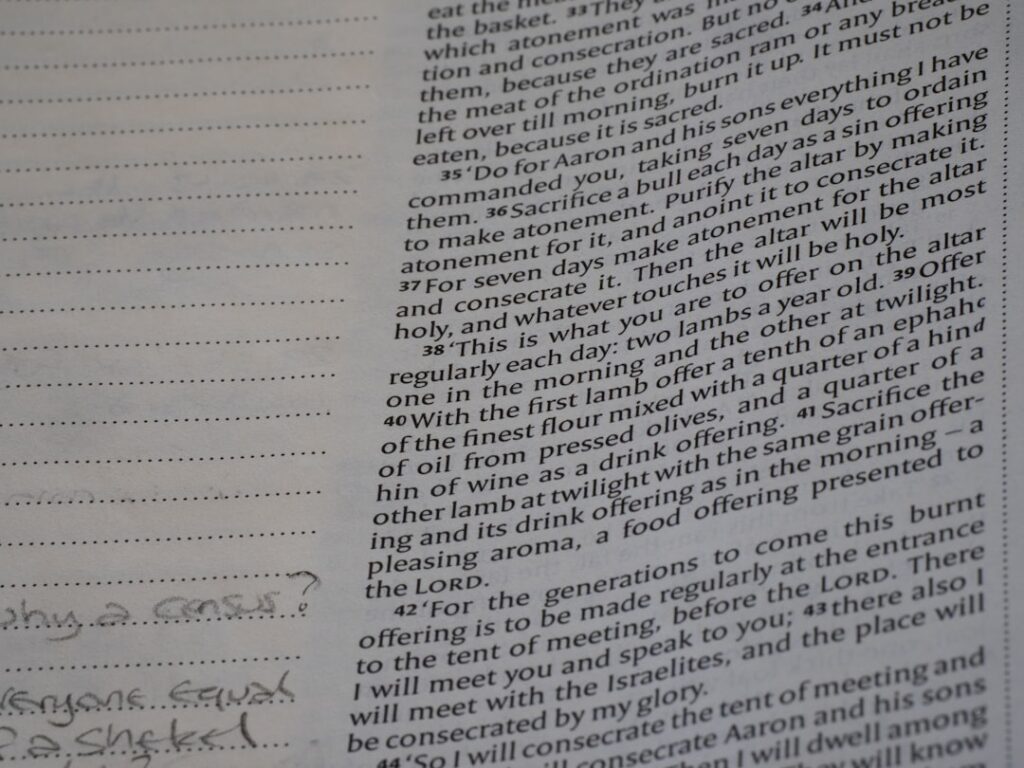 eat the
the basket. 33They
which atonement was
tion and consecration. But no
them, because they are sacred. 34And
the meat of the ordination ram or any
left over till morning, burn it up. It must not be
eaten, because it is sacred.
35‘Do for Aaron and his sons everything I have
commanded you, taking seven days to ordain
them. 36Sacrifice a bull each day as a sin offering
to make atonement. Purify the altar by making
atonement for it, and anoint it to consecrate it.
37For seven days make atonement for the altar
and consecrate it. Then the altar will be most
holy, and whatever touches it will be holy.
38‘This is what you are to offer on the altar
regularly each day: two lambs a year old. 39Offer
one in the morning and the other at twilight.
40With the first lamb offer a tenth of an ephah c
of the finest flour mixed with a quarter of a hin d
of oil from pressed olives, and a quarter of a
hin of wine as a drink offering. 41Sacrifice the
other lamb at twilight with the same grain offer-
ing and its drink offering as in the morning – a
pleasing aroma, a food offering presented to
the LORD.
42‘For the generations to come this burnt
offering is to be made regularly at the entrance
to the tent of meeting, before the LORD. There
I will meet you and speak to you; 43there also I
will meet with the Israelites, and the place will
be consecrated by my glory.
44‘So I will consecrate the tent of meeting and
consecrate Aaron and his sons
I will dwell among
will know
why a census?
everyone equal
a shekel